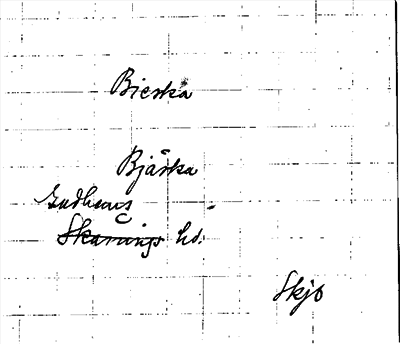 Bierska
Bjärka
Gudhems
Skarnings hd.
Skjb